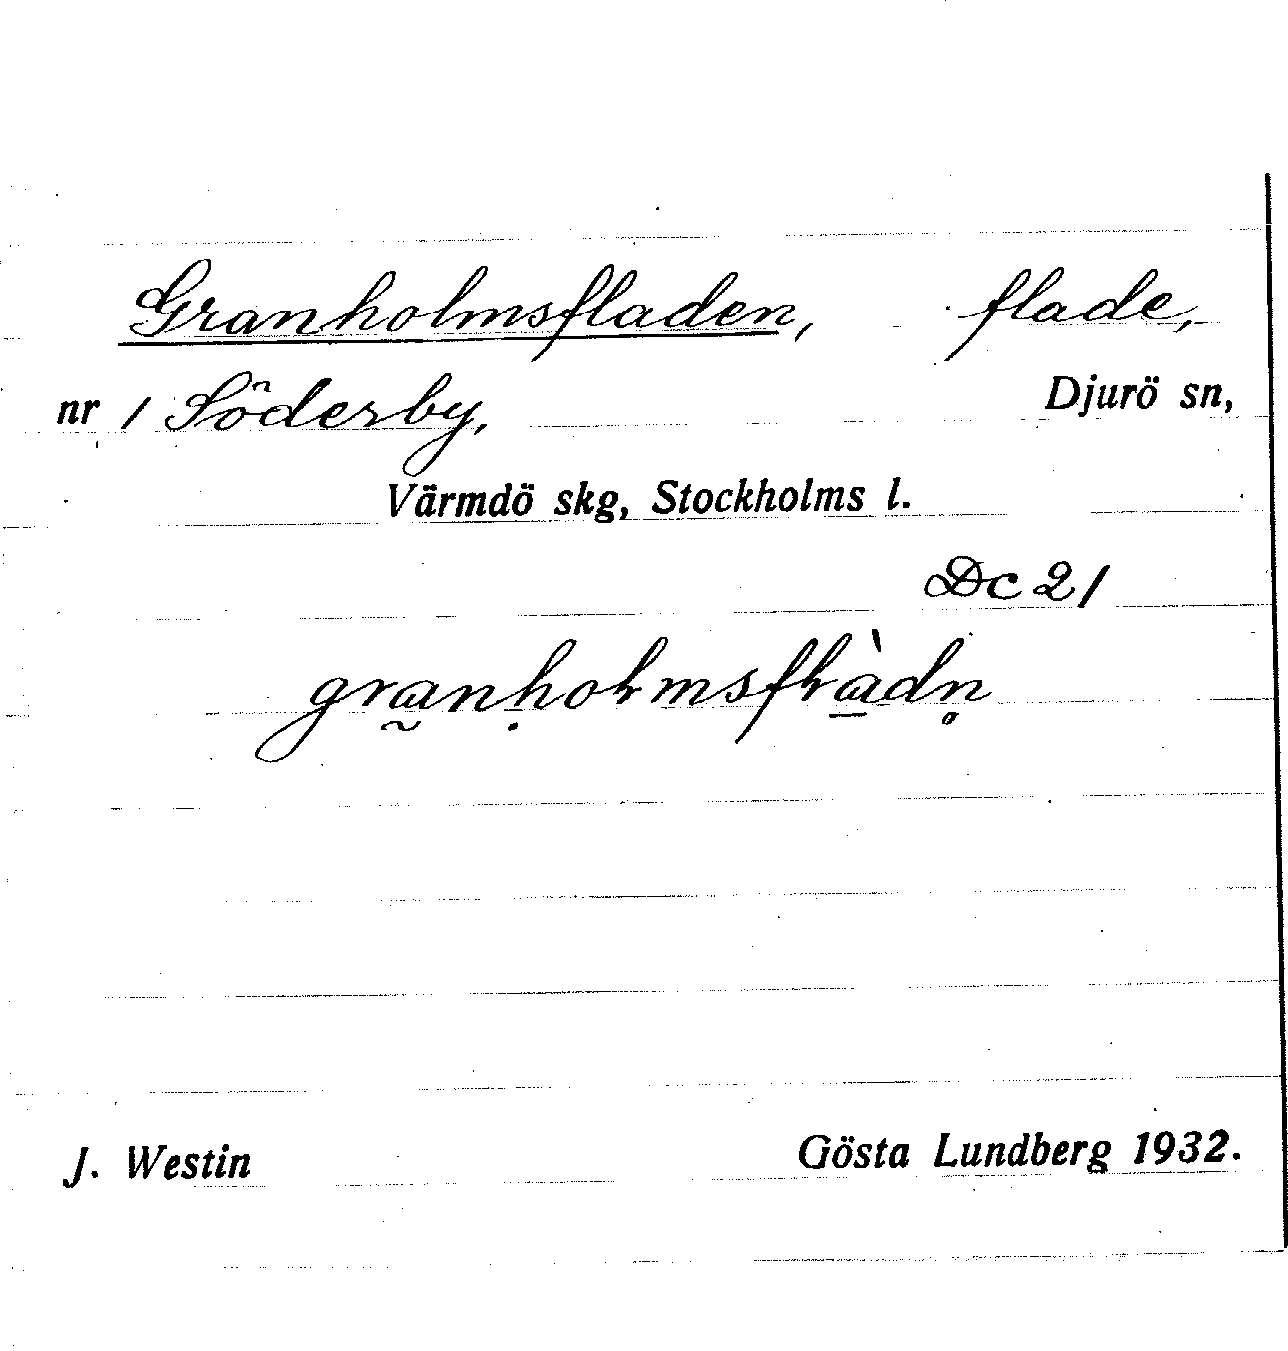 Granholmsfladen, flade,
nr 1 Söderby, Djurö sn,
Värmdö skg, Stockholms l.
Dc 21
granholmsflàdn̥
J. Westin Gösta Lundberg 1932.